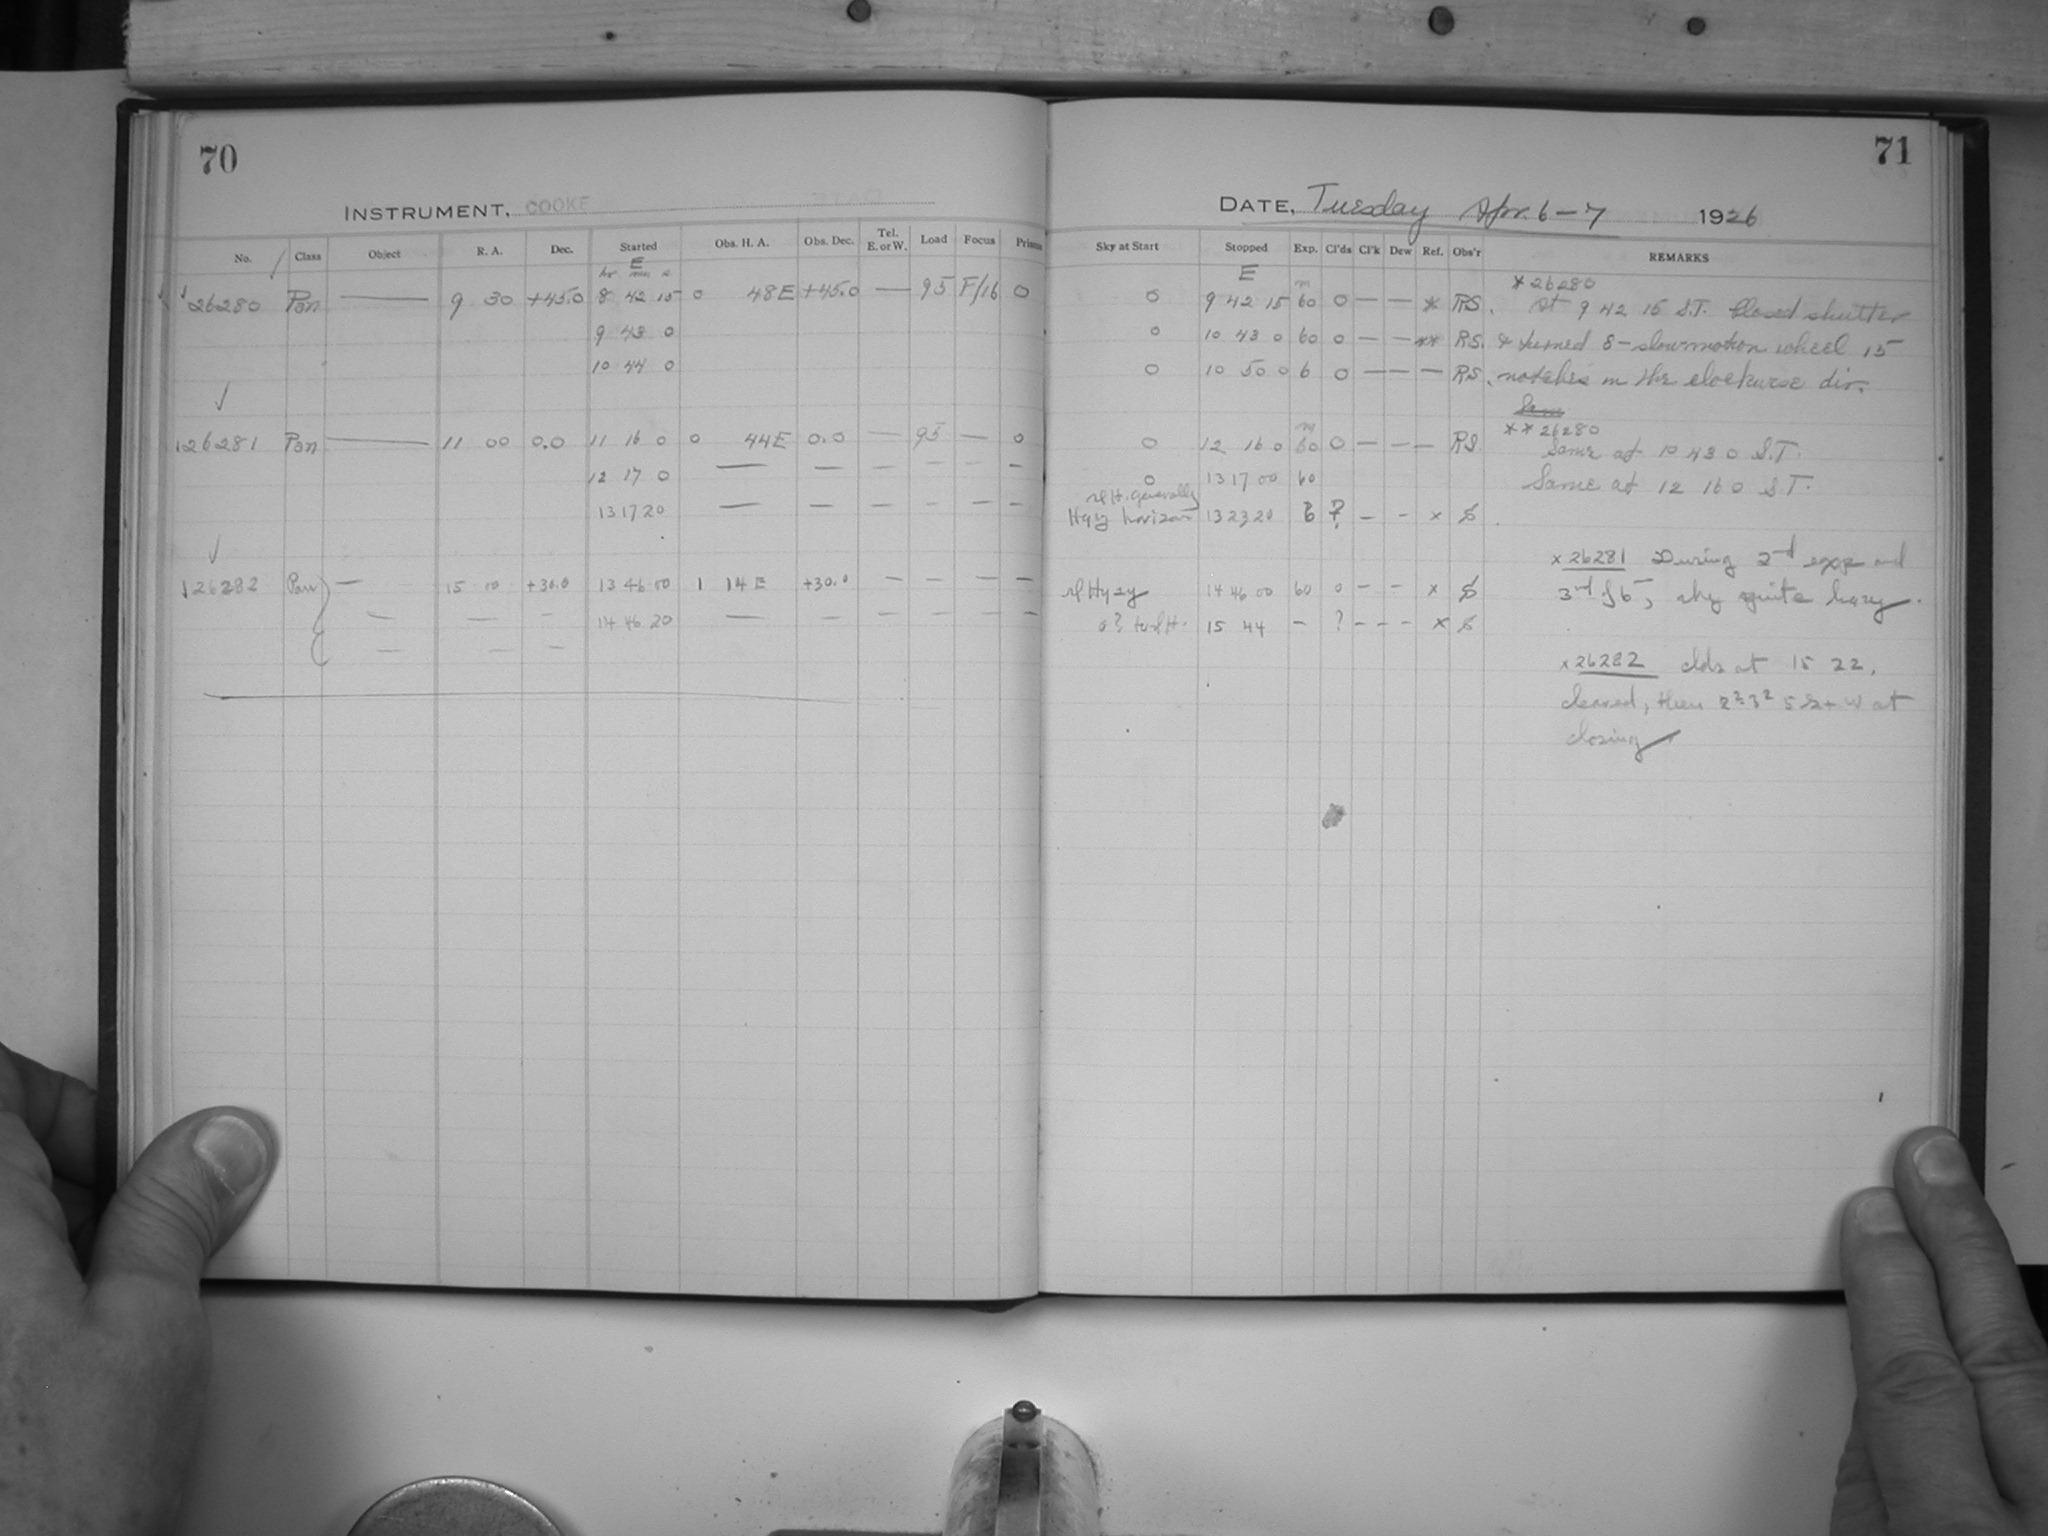 70
INSTRUMENT, COOKE
No. Class Object R. A. Dec. Started Obs. H. A. Obs. Dec. Tel. E. or W. Load Focus Prisms
E
hr min s
26280 Pan — 9 30 +45.0 8 42 15 0 48E +45.0 — 95 F/16 0
9 43 0
10 44 0
26281 Pan — 11 00 0.0 11 16 0 0 44E 0.0 — 95 — 0
12 17 0 — — — — — —
13 17 20 — — — — — —
26282 Pan — 15 00 +30.0 13 46 00 1 14 E +30.0 — — — —
— — — 14 46 20 — — — — — —
— — —
71
DATE, Tuesday Apr. 6-7 1926
Sky at Start Stopped Exp. Cl'ds Cl'k Dew Ref. Obs'r REMARKS
E m
0 9 42 15 60 0 — — * RS.
0 10 43 0 60 0 — — ** RS.
0 10 50 0 6 0 — — — RS.
m
0 12 16 0 60 0 — — — RS
0 13 17 00 60
sl H. generally
Hazy horizon 13 23 20 6 ? — - x S
sl Hazy 14 46 00 60 0 — - x S
15 44 - ? - - - x S
* 26280
At 9 42 15 S.T. Closed shutter
& turned δ-slow motion wheel 15
notches in the clockwise dir.
** 26280
Same at 10 43 0 S.T.
Same at 12 16 0 S.T.
x 26281 During 2nd exps and
3rd of 6, sky quite hazy.
x 26282 clds at 15 22,
cleared, then W at
closing